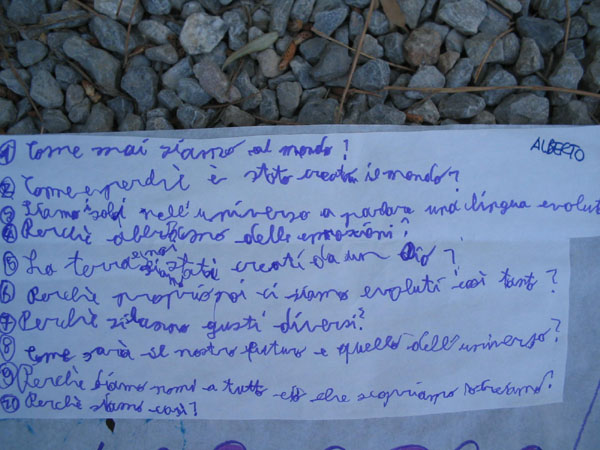 ALBERTO
1 Come mai siamo al mondo?
2 Come e perchè è stato creato il mondo?
3 Siamo soli nell'universo a parlare una lingua evolut
4 Perchè abbiamo delle emozioni?
5 La terra e noi siamo stati creati da un Dio?
6 Perchè proprio noi ci siamo evoluti così tanto?
7 Perchè si hanno gusti diversi?
8 Come sarà il nostro futuro e quello dell'universo?
9 Perchè diamo nomi a tutto ciò che scopriamo
10 Perchè siamo così?